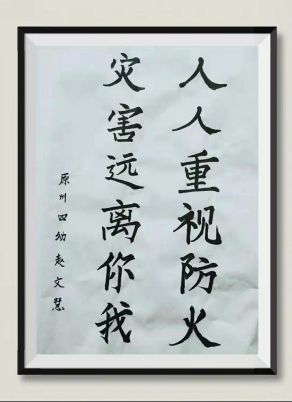 人人重视防火
灾害远离你我
原州四幼赵文慧